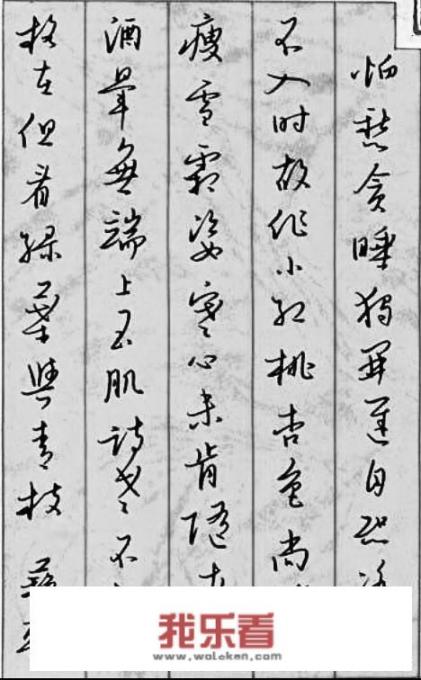 怕愁贪睡独開遲自恐
不入时故作小红桃杏色尚
瘦雪霜姿寒心未肯随
酒晕無端上玉肌詩老不
格在但看绿葉與青枝
我乐看
www.woleken.com